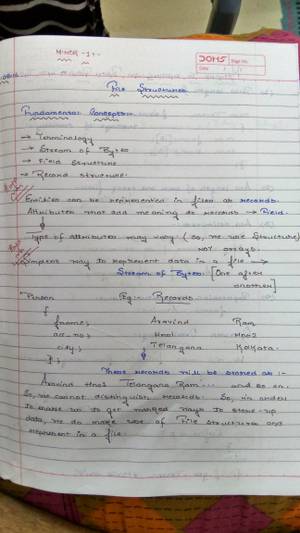 MINOR - 1 :-
DOMS
Page No.
Date
File Structures
Fundamental Concepts:-
→ Terminology
→ Stream of Bytes
→ Field Structure
→ Record structure.
Entities can be represented in files as records.
Attributes that add meaning to records → Field.
Type of attributes may vary. (so, we use structure)
NOT arrays.
Simplest way to represent data in a file →
Stream of Bytes. [One after
another]
Person Eg:- Records
{
fname; Aravind Ram
ac_no; Hno1 Hno2
city; Telangana Kolkata.
};
These records will be stored as :-
Aravind Hno1 Telangana Ram... and so on.
So, we cannot distinguish records. So, in order
to make us to get ways to store up
data, we do make use of File Structures and
represent in a file.